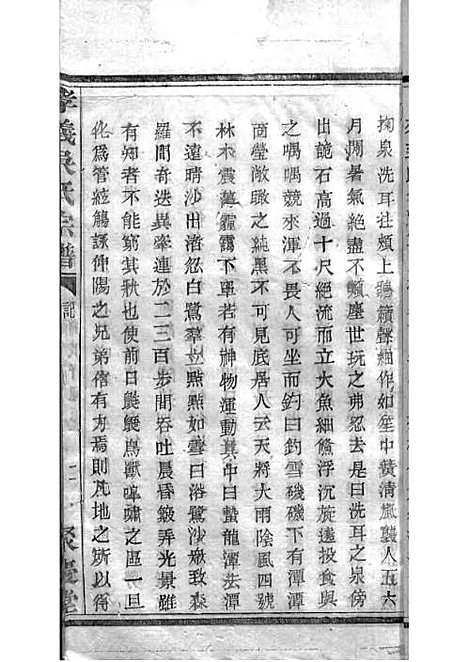 掬泉洗耳社頰上聽籟聲細作如笙中簧清嵐襲人五六
月閒暑氣絕盡不顧塵世玩之弗忍去是曰洗耳之泉傍
出詭石高過十尺絕流而立大魚細鯈浮沉旋遶投食與
之喁喁競來渾不畏人可而釣曰釣雪磯磯下有潭潭
商瑩敞瞰之純黑不可見底居人云天將大雨陰風四號
林木震薄靉霧下單若有神物運動其中曰蟄龍潭去潭
不遠晴沙出渚忽白鷺羣立點點如雪曰浴鷺沙嫩致森
羅間奇迭異牽連於二三百步間吞吐晨昏簸弄光景雖
有知者不能窮其狀也使前日鼪鼯鳥獸嘷嘯之區一旦
化爲管絃觴詠仲陽之兄弟信有力焉則凡地之所以得
孝義吳氏宗譜
記
聚慶堂